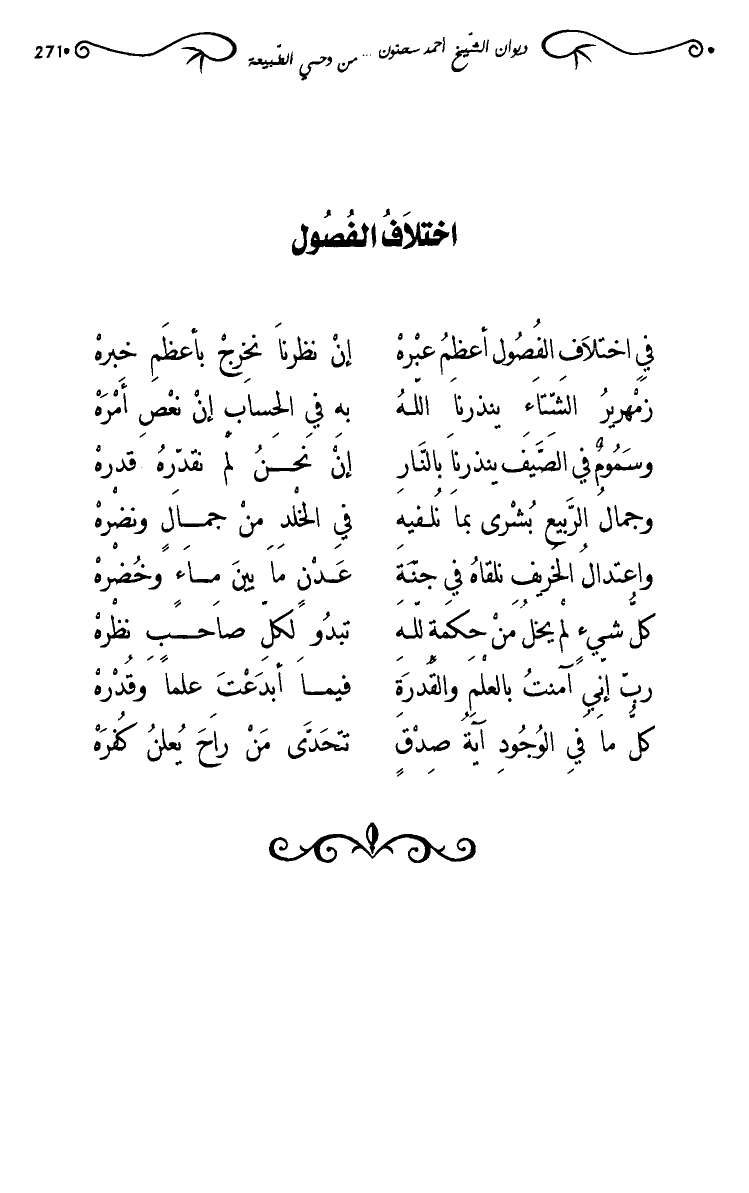 ديوان الشّيخ أحمد سحنون ... من وحي الطّبيعة •271
اختلاَفُ الفُصُول
في اختلاَفِ الفُصُول أعظمُ عبْرهْ إنْ نظرناَ نخرجْ بأعظَم خبرهْ
زمْهريرُ الشّتَاء ينذرناَ اللّهُ به في الحِسابِ إنْ نعْصِ أَمْرَهْ
وسَمُومٌ في الصَّيَف ينذرناَ بالنَّارِ إنْ نَحـــنُ لمْ نقدّرهُ قدرهْ
وجمالُ الرَّبيعِ بُشْرى بماَ نُلـفيهِ في الخْلدِ مِنْ جمـــالٍ ونضْرهْ
واعتدالُ الخَريفِ نلقاهُ في جنّةِ عَـدْنٍ ماَ بينَ مـــاءٍ وخُضْرهْ
كلُّ شيءٍ لمْ يخلُ مَنْ حِكمَةٍ للّهِ تبدُو لكلّ صاَحـــبِ نظْرهْ
ربّ إنّي آمنتُ بالعلْمِ والقُدرَةِ فيمـــاَ أبدَعْتَ علماً وقُدْرهْ
كلُّ ماَ في الوُجُودِ آيَةُ صِدْقٍ تتحَدَّى مَنْ راحَ يُعلنُ كُفرَهْ